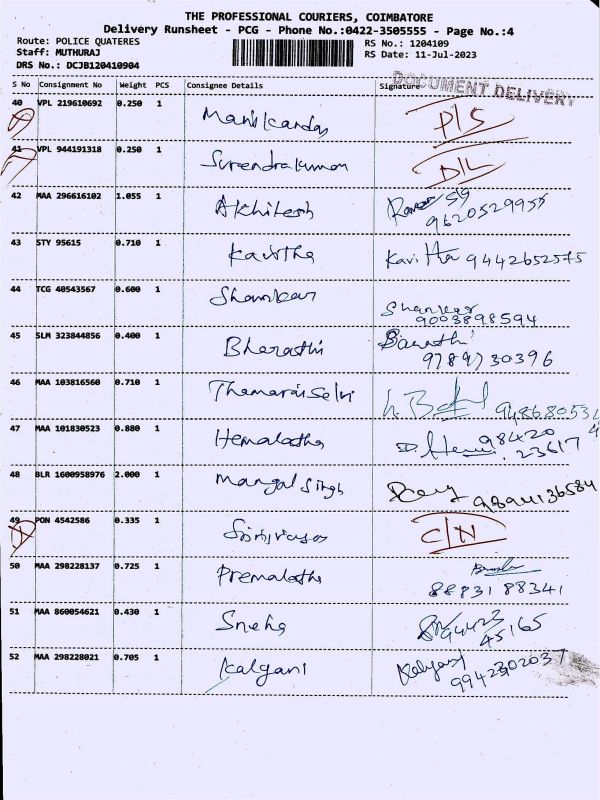 THE PROFESSIONAL COURIERS, COIMBATORE
Delivery Runsheet - PCG - Phone No.:0422-3505555 - Page No.:4
Route: POLICE QUATERES RS No.: 1204109
Staff: MUTHURAJ RS Date: 11-Jul-2023
DRS No.: DCJB120410904
DOCUMENT DELIVERY
S No Consignment No Weight PCS Consignee Details Signature
40 VPL 219610692 0.250 1 Manikandan P/S
41 VPL 944191318 0.250 1 Surendrakumar D/L
42 MAA 296616102 1.055 1 Akhilesh
9620529955
43 STY 95615 0.710 1 Kavitha Kavitha 9442652575
44 TCG 40543567 0.600 1 Shankar Shankar
9003898594
45 SLM 323844856 0.400 1 Bharathi Barathi
9789730396
46 MAA 103816560 0.710 1 Thamarai Selvi
47 MAA 101830523 0.880 1 Hemalatha 98420
23617
48 BLR 1600958976 2.000 1 Mangal Singh 9894136584
49 PON 4542586 0.335 1 Srinivasan C/N
50 MAA 298228137 0.725 1 Premalatha
88831 88341
51 MAA 860054621 0.430 1 Sneha 94423
45165
52 MAA 298228021 0.705 1 Kalyani Kalyani